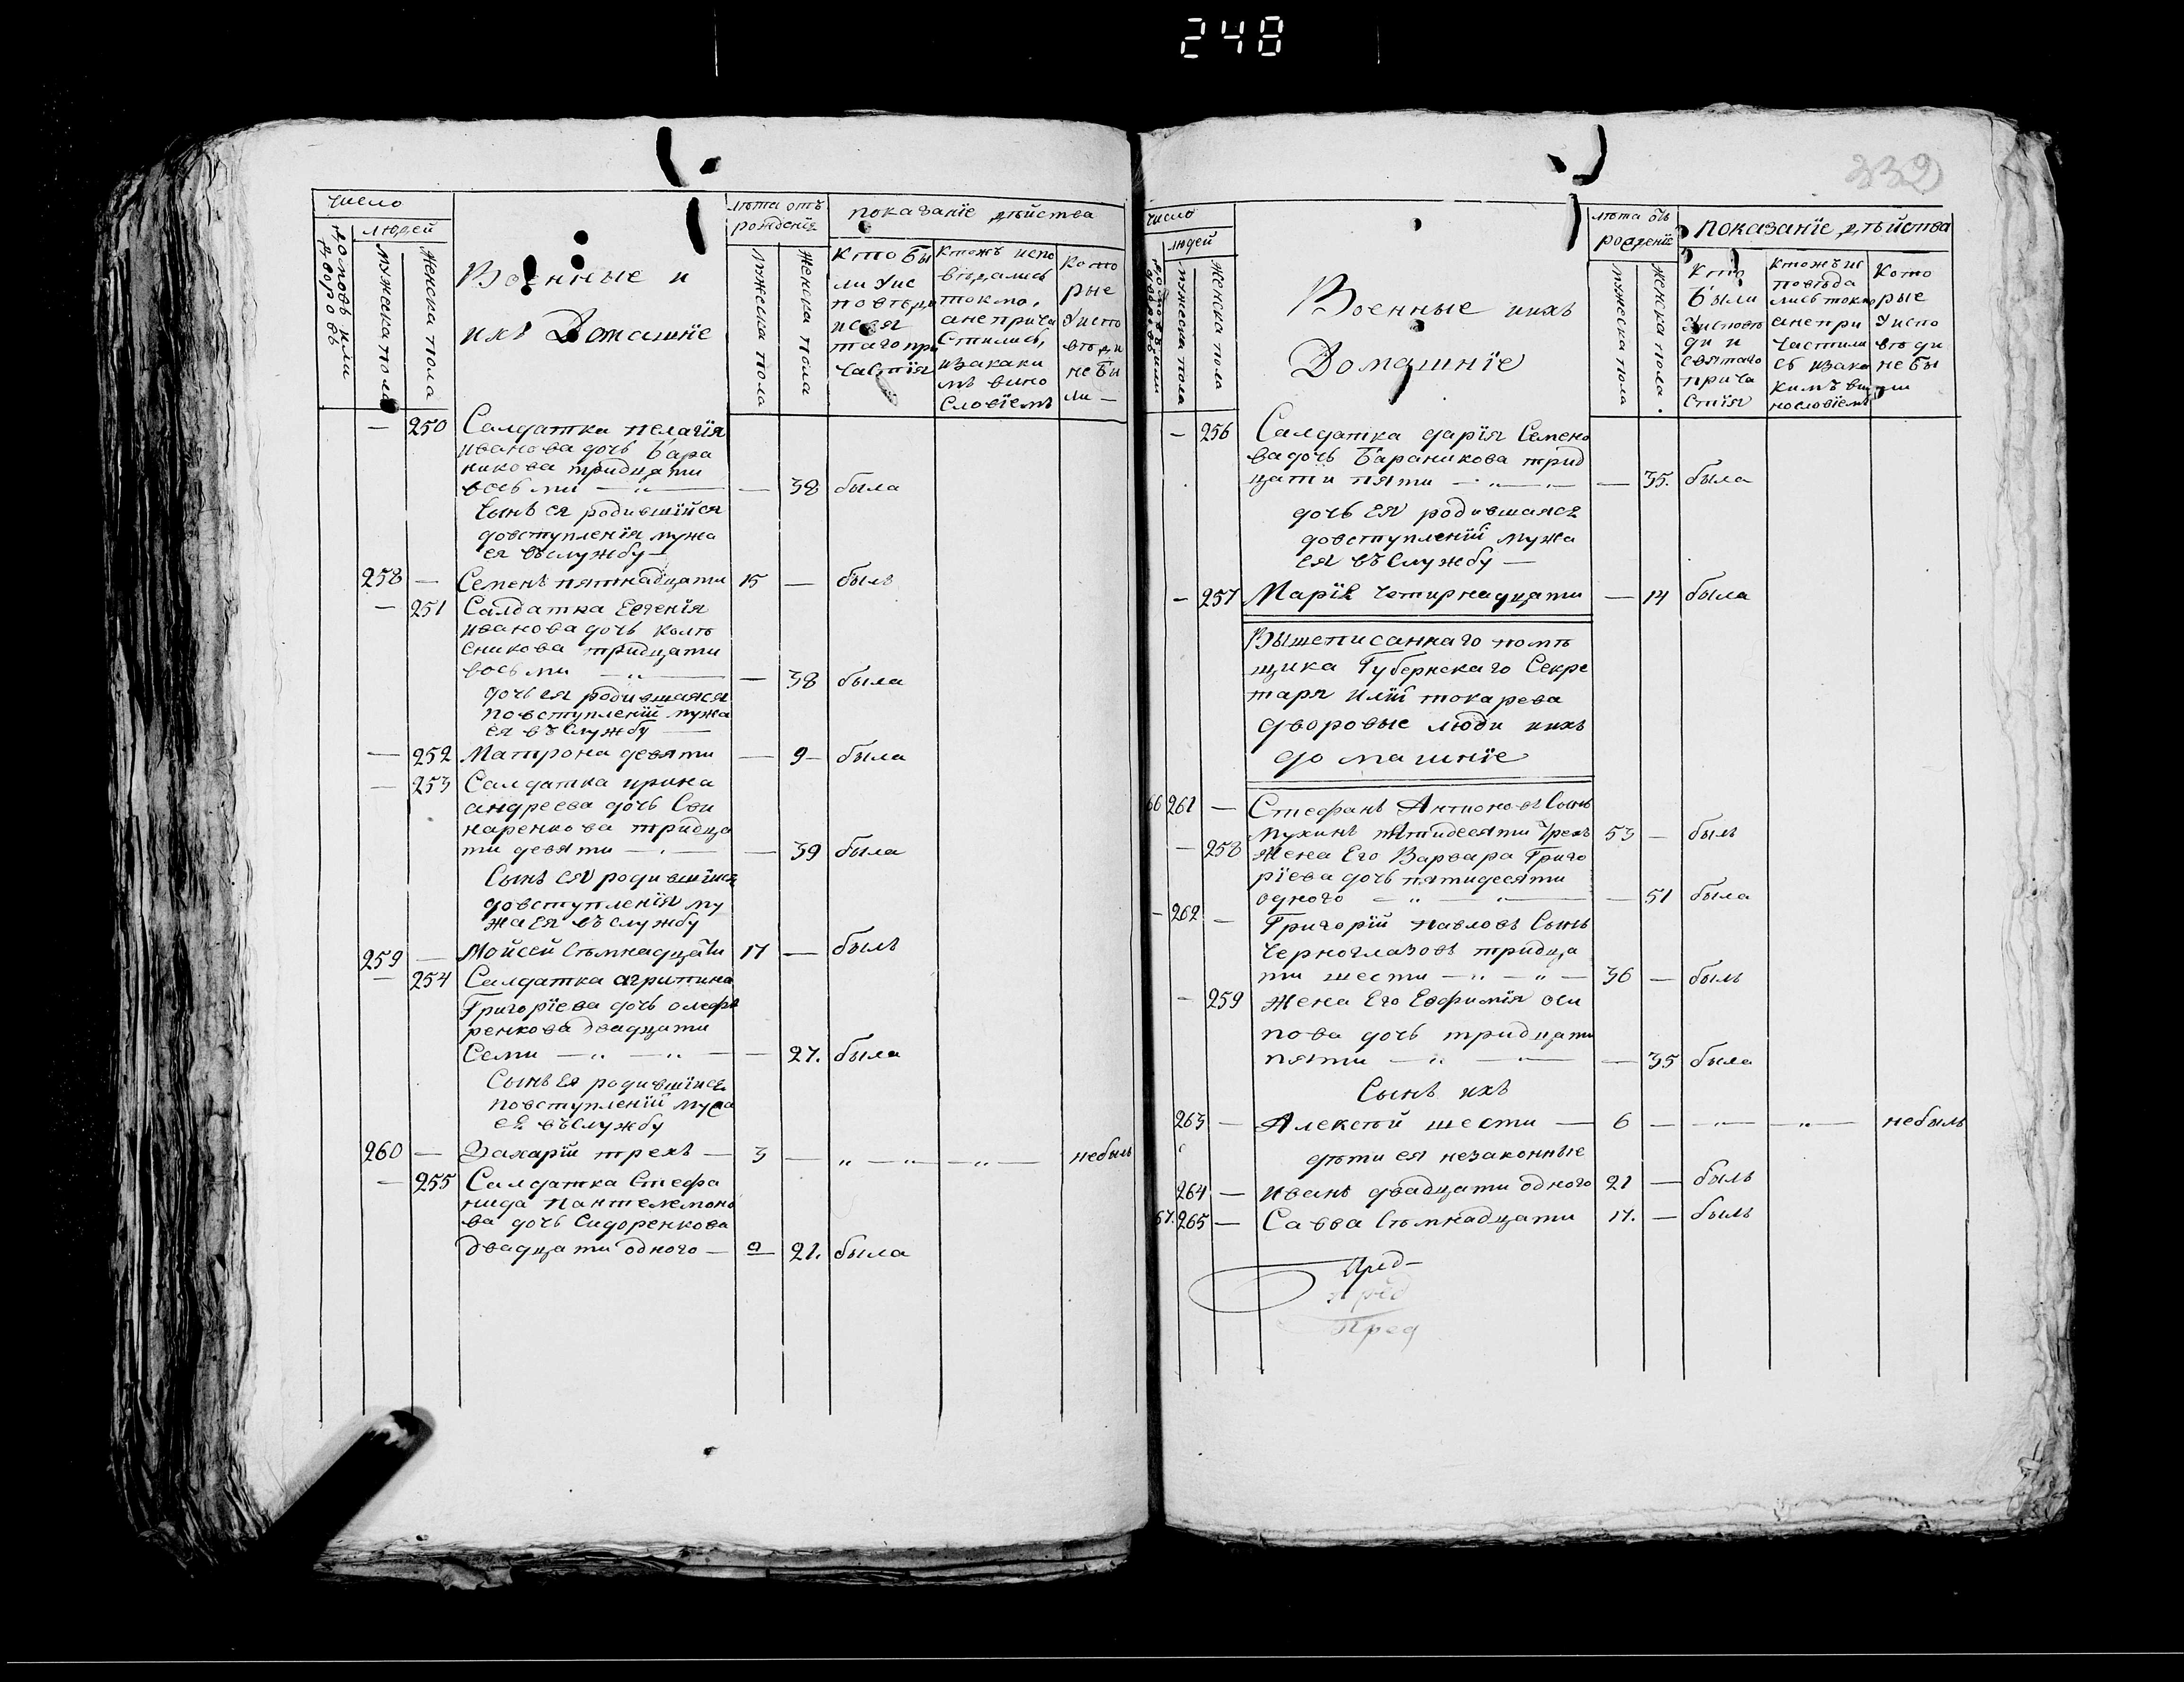 248
332
число
людей
домовъ или дворовъ
мужеска пола
женска пола
Военные и
ихъ Домашніе
лѣта отъ
рожденія
мужеска пола
женска пола
показаніе дѣйства
кто бы
ли у ис
повѣди
и свя
таго при
частія
ктожъ испо
вѣдались
токмо,
а не прича
стились,
и за каки
мъ вино
словіемъ
кото
рые
у испо
вѣди
не бы
ли —
— 250 Салдатка пелагія
иванова дочь Бара
никова тридцати
восьми — „ — — 38 была
Сынъ ея родившійся
до вступленія мужа
ея въ службу —
258 — Семенъ пятнадцати 15 — былъ
— 251 Салдатка Евгенія
иванова дочь колѣ
сникова тридцати
восьми — „ — — 38 была
дочь ея родившаяся
по вступленіи мужа
ея въ службу —
— 252 Матрона девяти — 9 — была
— 253 Салдатка ирина
андреева дочь Сви
наренкова тридца
ти девяти — . — — 39 была
Сынъ ея родившійся
до вступленія му
жа ея въ службу
259 — Мойсей Сѣмнадцати 17 — былъ
— 254 Салдатка агрипина
Григоріева дочь олефѣ
ренкова двадцати
Семи — „ — „ — — 27. была
Сынъ ея родившійся
по вступленіи мужа
ея въ службу
260 — Захарій трехъ — 3 — „ — „ — „ — небылъ
— 255 Салдатка Стефа
нида пантелемоно
ва дочь Сидоренкова
двадцати одного — 21. была
число
людей
домовъ или дворовъ
мужеска пола
женска пола
Военные и ихъ
Домашніе
лѣта отъ
рожденіе
мужеска пола
женска пола.
показаніе дѣйства
кто
были
у исповѣ
ди и
святаго
прича
стія
ктожъ ис
повѣда
лись токмо
а не при
частили
сь и за ка
кимъ ви
нословіемъ
кото
рые
у испо
вѣди
не бы
ли
— 256 Салдатка дарія Семено
ва дочь Бараникова трид
цати пяти — „ — „ — — 35. была
дочь ея родившаяся
до вступленіи мужа
ея въ службу —
— 257 Марія четырнадцати — 14 была
Вышеписаннаго помѣ
щика Губернскаго Секре
таря иліи токарева
дворовые люди и ихъ
домашніе
66 261 — Стефанъ Антоновъ Сынъ
Мухинъ пятидесяти трехъ 53 — былъ
— 258 Жена Его Варвара Григо
ріева дочь пятидесяти
одного — „ — „ — — 51 была
— 262 — Григорій павловъ Сынъ
Черноглазовъ тридца
ти шести — „ — „ — 36 — былъ
— 259 Жена Его Евфимія оси
пова дочь тридцати
пяти — „ — — 35 была
Сынъ ихъ
263 — Алексѣй шести — 6 — „ — „ — небылъ
дѣти ея незаконные
264 — иванъ двадцати одного 21 — былъ
67. 265 — Савва Сѣмнадцати 17. — былъ
пред
Пред